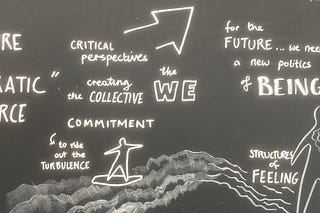 RE
RATIC"
RCE
CRITICAL
perspectives
creating
the COLLECTIVE
the
WE
COMMITMENT
to ride
out the
TURBULENCE
for the
FUTURE... we need
a new politics
of BEING
STRUCTURES
of
FEELING